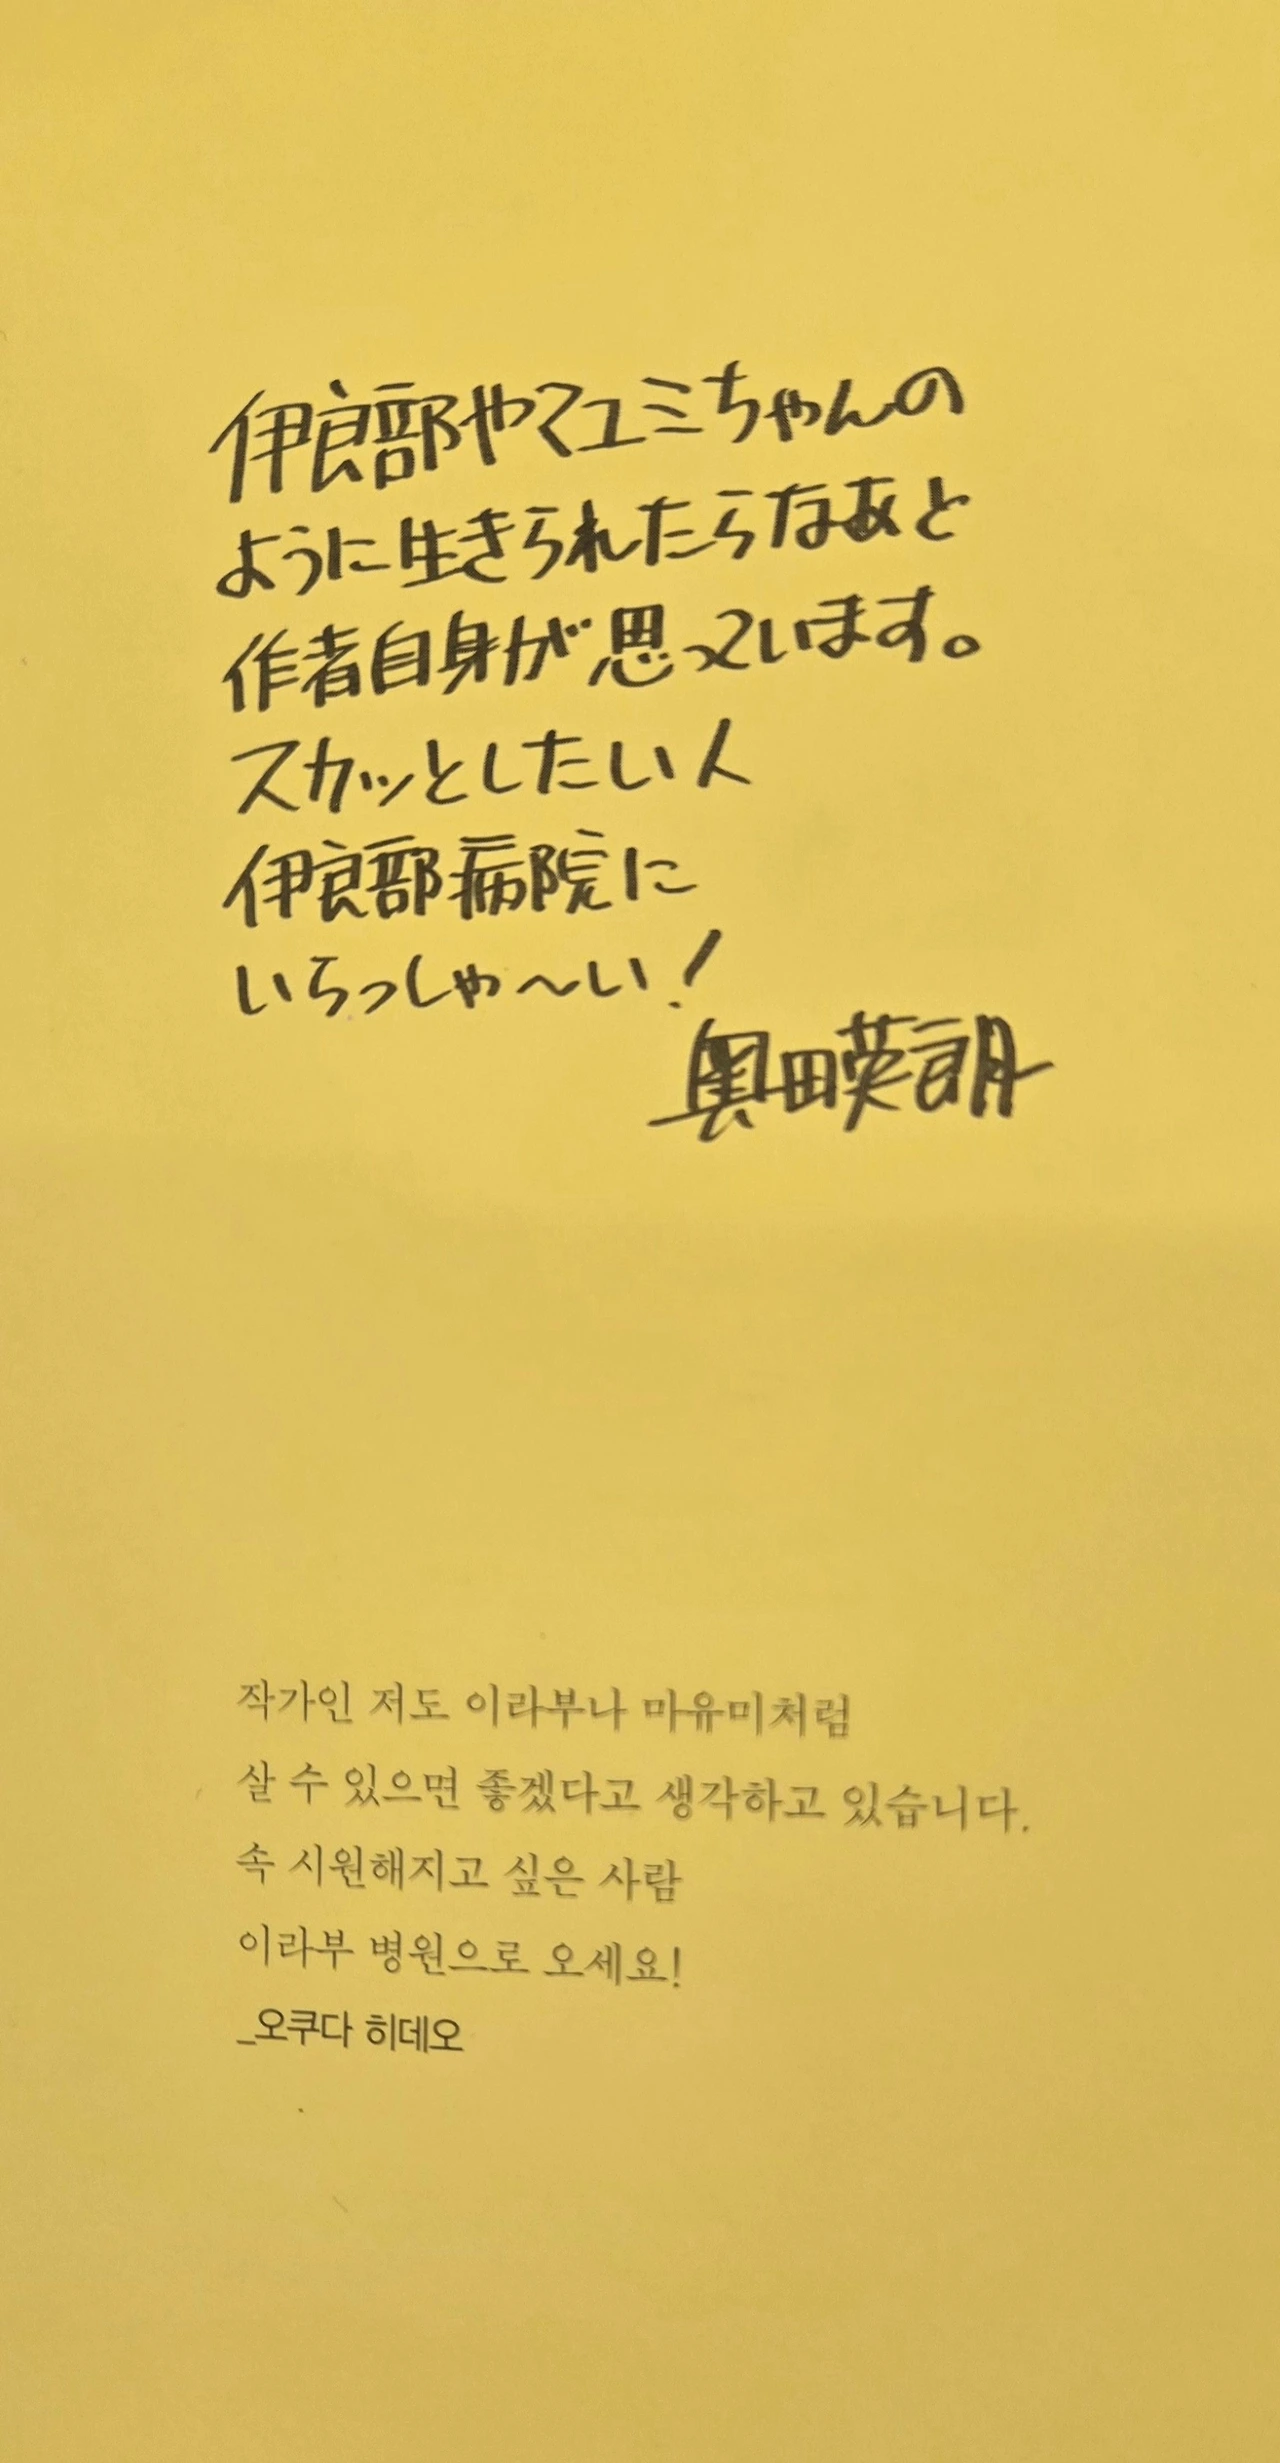 伊良部やマユミちゃんの
ように生きられたらなあと
作者自身が思っています。
スカッとしたい人
伊良部病院に
いらっしゃ〜い!
奥田英朗
작가인 저도 이라부나 마유미처럼
살 수 있으면 좋겠다고 생각하고 있습니다.
속 시원해지고 싶은 사람
이라부 병원으로 오세요!
_오쿠다 히데오